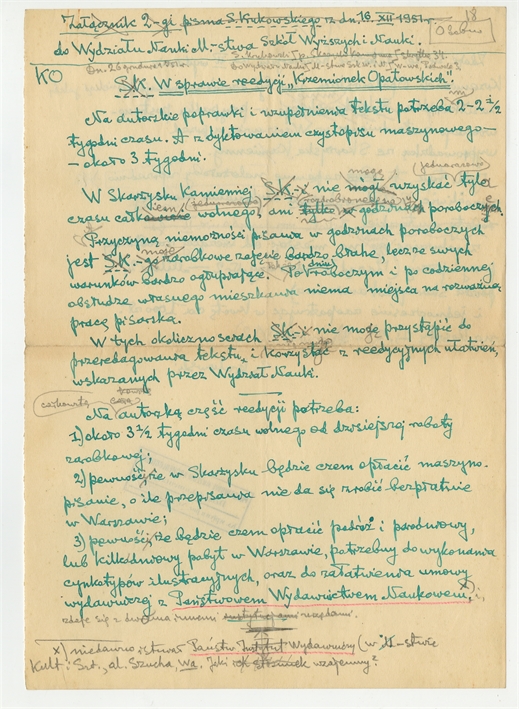 Załącznik 2-gi pisma S. Krukowskiego z dn. 16. XII 1951 r.
18
do Wydziału Nauki M-stwa Szkół Wyższych i Nauki.
KO
SK. W sprawie reedycji „Krzemionek Opatowskich”.
Na autorskie poprawki i uzupełnienia tekstu potrzeba 2-2 1/2
tygodni czasu. A z dyktowaniem czystopisu maszynowego -
- około 3 tygodni.
W Skarżysku Kamiennej SK. nie mogę uzyskać tyle
czasu wolnego, ani godzinach poroboczych
Przyczyną niemożności pisania w godzinach poroboczych
jest SK. zarobkowe zajęcie bardzo błahe, lecz ze swych
warunków bardzo ogłupiające. Po roboczym dniu i po codziennej
obsłudze własnego mieszkania niema miejsca na rozważną
pracę pisarską.
W tych okolicznościach SK. nie mogę przystąpić do
przeredagowania tekstu i korzystać z reedycyjnych ułatwień,
wskazanych przez Wydział Nauki.
całkowitą
Na autorską część reedycji potrzeba:
1) około 3 1/2 tygodni czasu wolnego od dzisiejszej roboty
zarobkowej;
2) pewność, że w Skarżysku będzie czem opłacić maszyno-
pisanie, o ile przepisania nie da się zrobić bezpłatnie
w Warszawie;
3) pewność, że będzie czem opłacić podróż i parodniowy,
lub kilkodniowy pobyt w Warszawie, potrzebny do wykonania
cynkotypów ilustracyjnych, oraz do załatwienia umowy
wydawniczej z Państwowem Wydawnictwem Naukowem, x) i,
zdaje się z dwoma innemi instytucjami urzędami.
x) niedawno istniał Państw. Instytut Wydawniczy (w M-stwie
Kult. i Szt., al. Szucha, Wa. Jaki stosunek wzajemny?